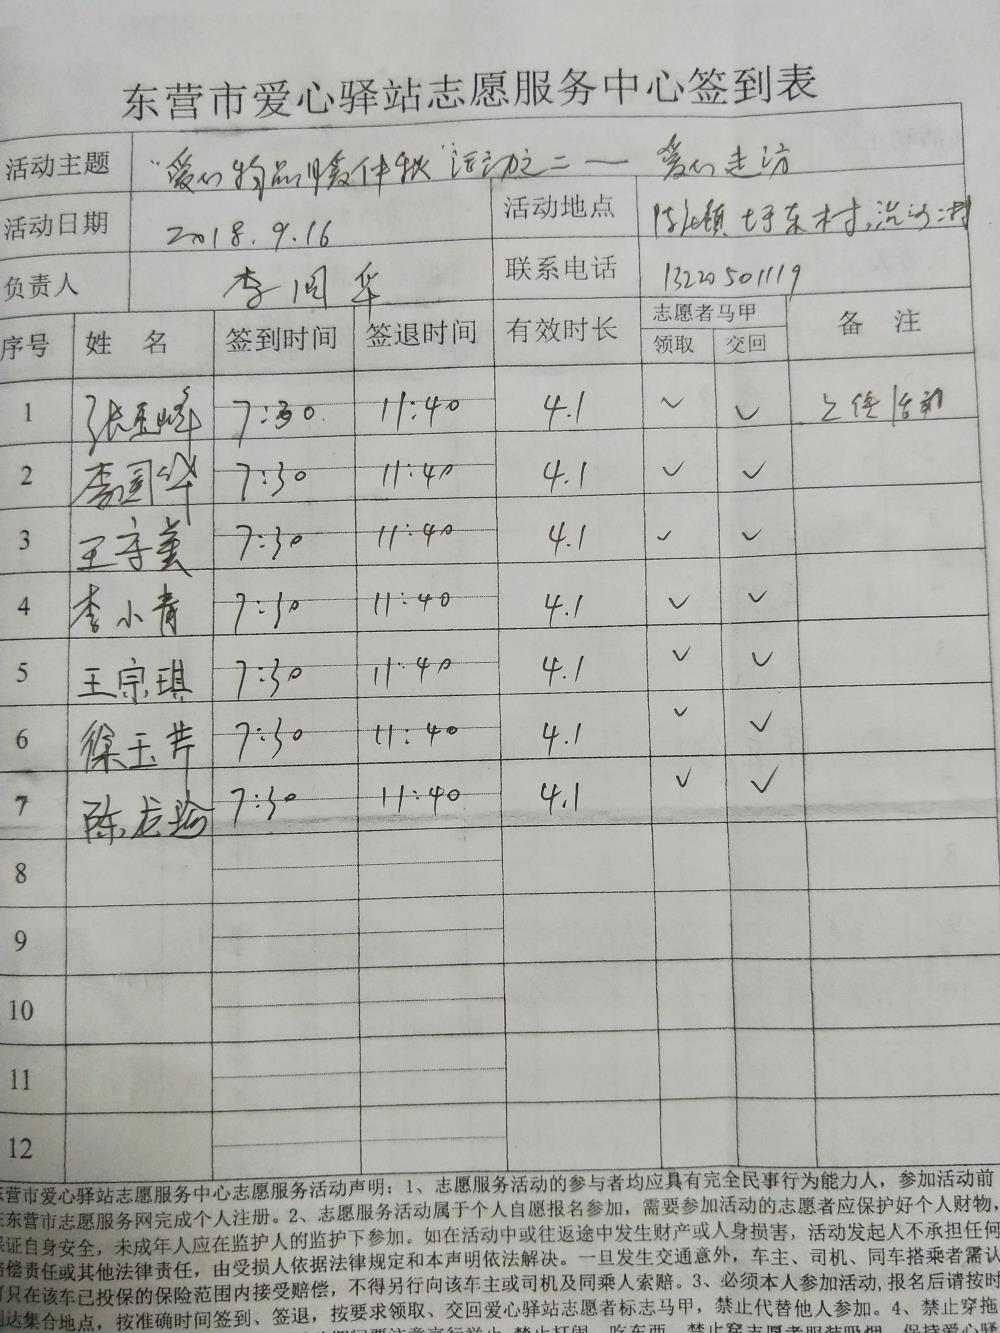 东营市爱心驿站志愿服务中心签到表
活动主题 "爱心物品 暖仲秋"活动之二——爱心走访
活动日期 2018.9.16 活动地点 陈庄镇 东村,沿河村
负责人 李国华 联系电话 13220501119
序号 姓名 签到时间 签退时间 有效时长 志愿者马甲 备注
领取 交回
1 张玉峰 7:30 11:40 4.1 ✓ ✓ 上传活动
2 李国华 7:30 11:40 4.1 ✓ ✓
3 王守美 7:30 11:40 4.1 ✓ ✓
4 李小青 7:30 11:40 4.1 ✓ ✓
5 王宗琪 7:30 11:40 4.1 ✓ ✓
6 徐玉芹 7:30 11:40 4.1 ✓ ✓
7 陈龙瑜 7:30 11:40 4.1 ✓ ✓
8
9
10
11
12
东营市爱心驿站志愿服务中心志愿服务活动声明:1、志愿服务活动的参与者均应具有完全民事行为能力人,参加活动前
在东营市志愿服务网完成个人注册。2、志愿服务活动属于个人自愿报名参加,需要参加活动的志愿者应保护好个人财物,
保证自身安全,未成年人应在监护人的监护下参加。如在活动中或往返途中发生财产或人身损害,活动发起人不承担任何
赔偿责任或其他法律责任,由受损人依据法律规定和本声明依法解决。一旦发生交通意外,车主、司机、同车搭乘者需认
可只在该车已投保的保险范围内接受赔偿,不得另行向该车主或司机及同乘人索赔。3、必须本人参加活动,报名后请按时
到达集合地点,按准确时间签到、签退,按要求领取、交回爱心驿站志愿者标志马甲,禁止代替他人参加。4、禁止穿拖
要注意言行举止,禁止打闹、吃东西,禁止穿志愿者服装吸烟,保持爱心驿